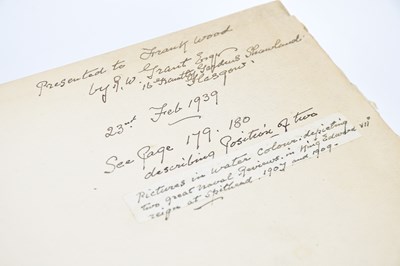 Presented to Frank Wood
by R. W. Grant Esqr
16 Gardens Shawlands
Glasgow.
23rd Feb 1939
See Page 179. 180
describing Position of two
Pictures in Water Colour. depicting
two great Naval Reviews. in King Edward VII
reign at Spithead. 1907 and 1909.